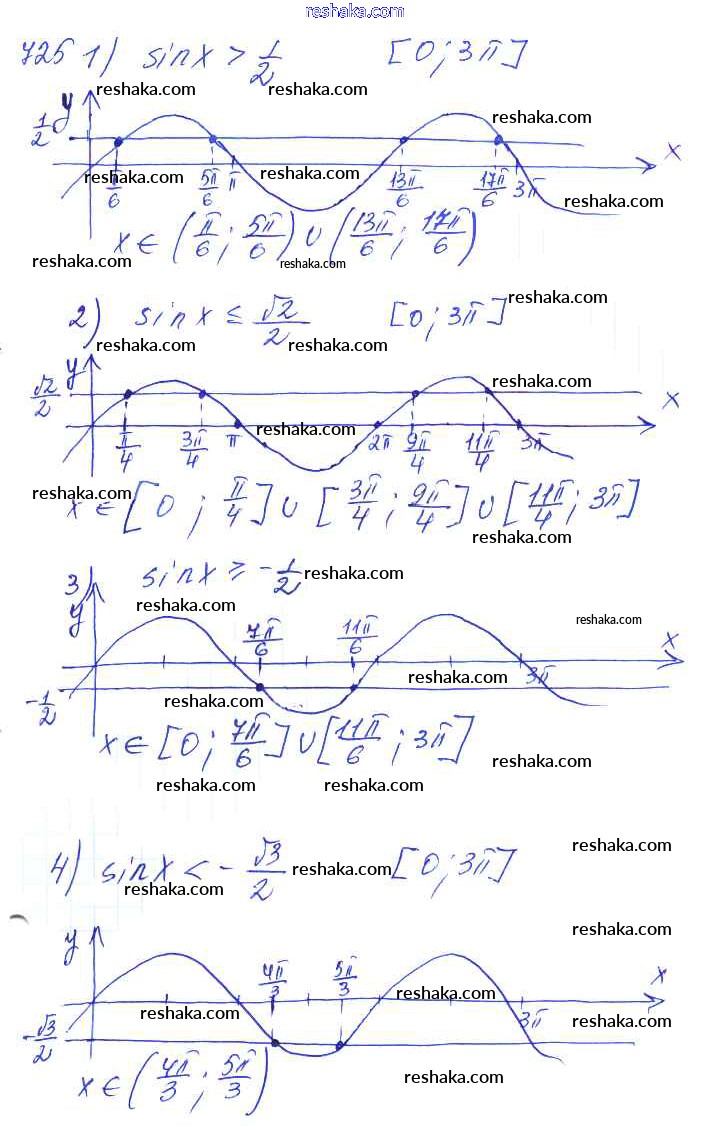 reshaka.com
725 1) sin x > 1/2 [0; 3π]
reshaka.com reshaka.com
y reshaka.com
1/2 x
reshaka.com reshaka.com
π/6 5π/6 π 13π/6 17π/6 3π
reshaka.com
x ∈ (π/6; 5π/6) ∪ (13π/6; 17π/6)
reshaka.com reshaka.com
2) sin x ≤ √2/2 [0; 3π]
reshaka.com
reshaka.com reshaka.com
y reshaka.com
√2/2 x
reshaka.com
π/4 3π/4 π 2π 9π/4 11π/4 3π
reshaka.com
x ∈ [0; π/4] ∪ [3π/4; 9π/4] ∪ [11π/4; 3π]
reshaka.com
3) sin x ≥ -1/2
reshaka.com
reshaka.com
y reshaka.com
7π/6 11π/6 x
reshaka.com 3π
-1/2 reshaka.com
x ∈ [0; 7π/6] ∪ [11π/6; 3π]
reshaka.com
reshaka.com reshaka.com
reshaka.com
4) sin x < -√3/2 [0; 3π]
reshaka.com
reshaka.com
reshaka.com
y 4π/3 5π/3 x
reshaka.com
reshaka.com 3π reshaka.com
-√3/2
x ∈ (4π/3; 5π/3)
reshaka.com